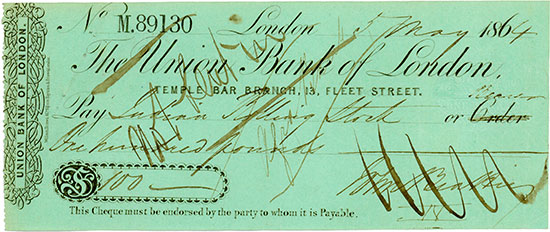 UNION BANK OF LONDON.
No M.89130 London 5 May 1864
The Union Bank of London,
TEMPLE BAR BRANCH, 13, FLEET STREET.
Pay Indian Stock or Order
One hundred pounds
£ 100
This Cheque must be endorsed by the party to whom it is Payable.